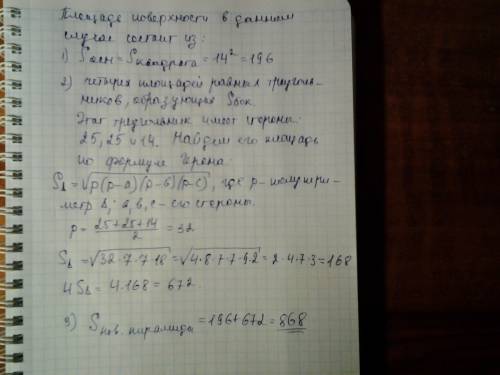 Площадь поверхности в данном
случае состоит из:
1) Sосн = Sквадрата = 14² = 196
2) четырех площадей равных треуголь-
ников, образующих Sбок.
Этот треугольник имеет стороны:
25, 25 и 14. Найдем его площадь
по формуле Герона:
S∆ = √p(p-a)(p-b)(p-c), где p - полупери-
метр ∆; a, b, c - его стороны.
p = (25+25+14)/2 = 32
S∆ = √32·7·7·18 = √4·8·7·7·9·2 = 2·4·7·3 = 168
4S∆ = 4·168 = 672.
3) Sпов. пирамиды = 196+672 = 868